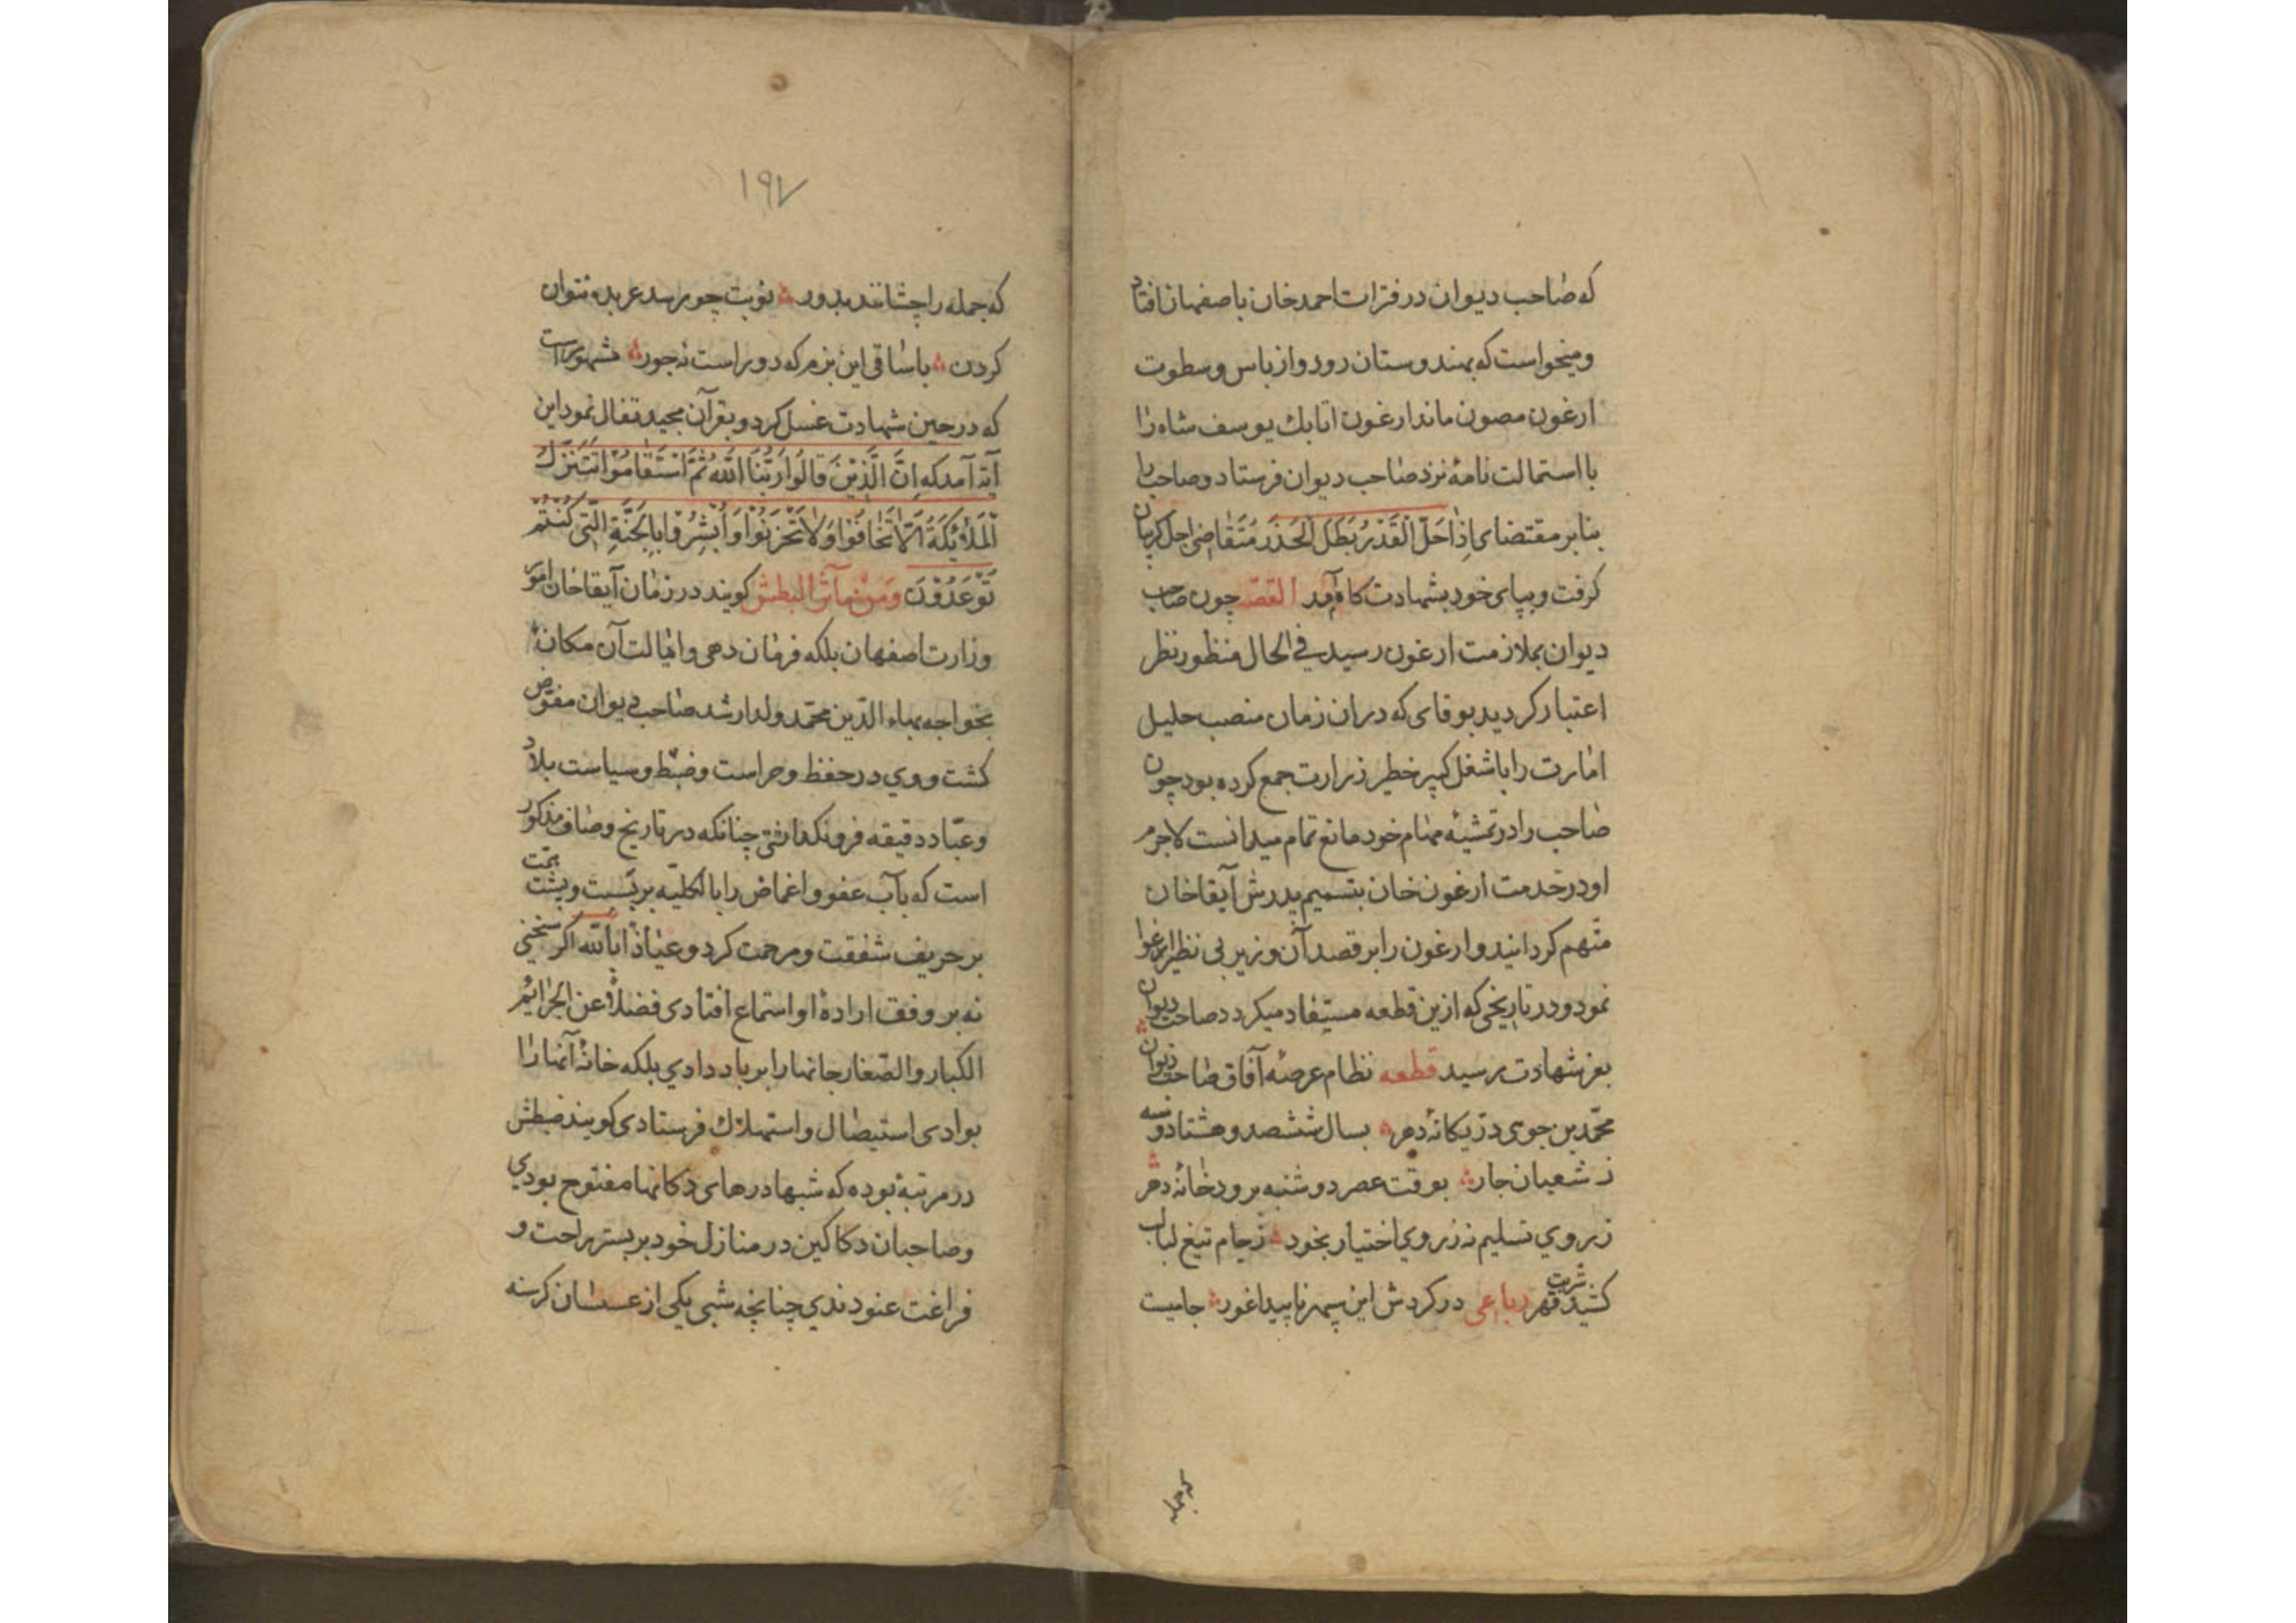 که صاحب دیوان در فترات احمد خان باصفهان افتاد
و میخواست که بهندوستان رود و از باس و سطوت
ارغون مصون ماند ارغون اتابک یوسف شاه را
با استمالت نامهٔ نزد صاحب دیوان فرستاد و صاحب را
بنابر مقتضای اِذٰا حَلَّ الْقَدْرُ بَطَلَ الْحَذَر مُتَقٰاضی اجل کریبان
کرفت و بپای خود بشهادت کاه آمد القصّه چون صاحب
دیوان بملازمت ارغون رسید فی الحال منظور نظر
اعتبار کردید بوقای که دران زمان منصب جلیل
امارت را با شغل کبیر خطیر وزارت جمع کرده بود چون
صاحب را در تمشیهٔ مهام خود مانع تمام میدانست لاجرم
او در خدمت ارغون خان بتسمیم پدرش آبقاخان
متّهم کردانید و ارغون را بر قصد آن وزیر بی نظیر اغوا
نمود و در تاریخی که ازین قطعه مستفاد میکردد صاحب دیوان
بعز شهادت رسید قطعه نظام عرصهٔ آفاق صاحب دیوان
محمّد بن جوی دز یکانهٔ دهر بسال ششصد و هشتاد و سه
ز شعبان جار بوقت عصر دوشنبه برودخانهٔ دهر
ز روی تسلیم نه ز روی اختیار بخود ز جام تیغ لبالب
کشید شربت قهر رباعی در کردش این سپهر ناپیدا غور جامیست
۱۹۷
که جمله را چشانند بدور نوبت چو رسد عربده نتوان
کردن با ساقی این بزم که دور است نه جور مشهور است
که در حین شهادت غسل کرد و بقرآن مجید تفال نمود این
آیه آمد که اِنَّ الَّذِیْنَ قالُوا رَبُّنَا اللّٰهُ ثُمَّ اسْتَقٰامُوْا تَتَنَزَّلُ
الْمَلٰائِکَةُ اَلّٰا تَخٰافُوْا وَلٰا تَحْزَنُوْا وَاَبْشِرُوْا بِالْجَنَّةِ الَّتی کُنْتُمْ
تُوْعَدُوْنَ وَمِنْ مآثر البطش کویند در زمان آبقاخان امور
وزارت اصفهان بلکه فرمان دهی و ایالت آن مکان
بخواجه بهاء الدّین محمّد ولد ارشد صاحب دیوان مفوّض
کشت و وی در حفظ و حراست و ضبط و سیاست بلاد
و عباد دقیقه فرو نکذاشتی چنانکه در تاریخ وصاف مذکور
است که باب عفو و اغماض را بالکلیّه بربست و پشت
بر حریف شفقت و مرحمت کرد و عیاذاً باللّه اکر سخنی
نه بر وفق ارادهٔ او استماع افتادی فضلاً عن الجرائم
الکبار والصّغار جانها را بر باد دادی بلکه خانهٔ آنها را
بوادی استیصال و استهلاک فرستادی کویند ضبطش
در مرتبهٔ بوده که شبها درهای دکانها مفتوح بودی
و صاحبان دکاکین در منازل خود بر بستر راحت و
فراغت غنودندی چنانچه شبی یکی از عسسان کرسنه